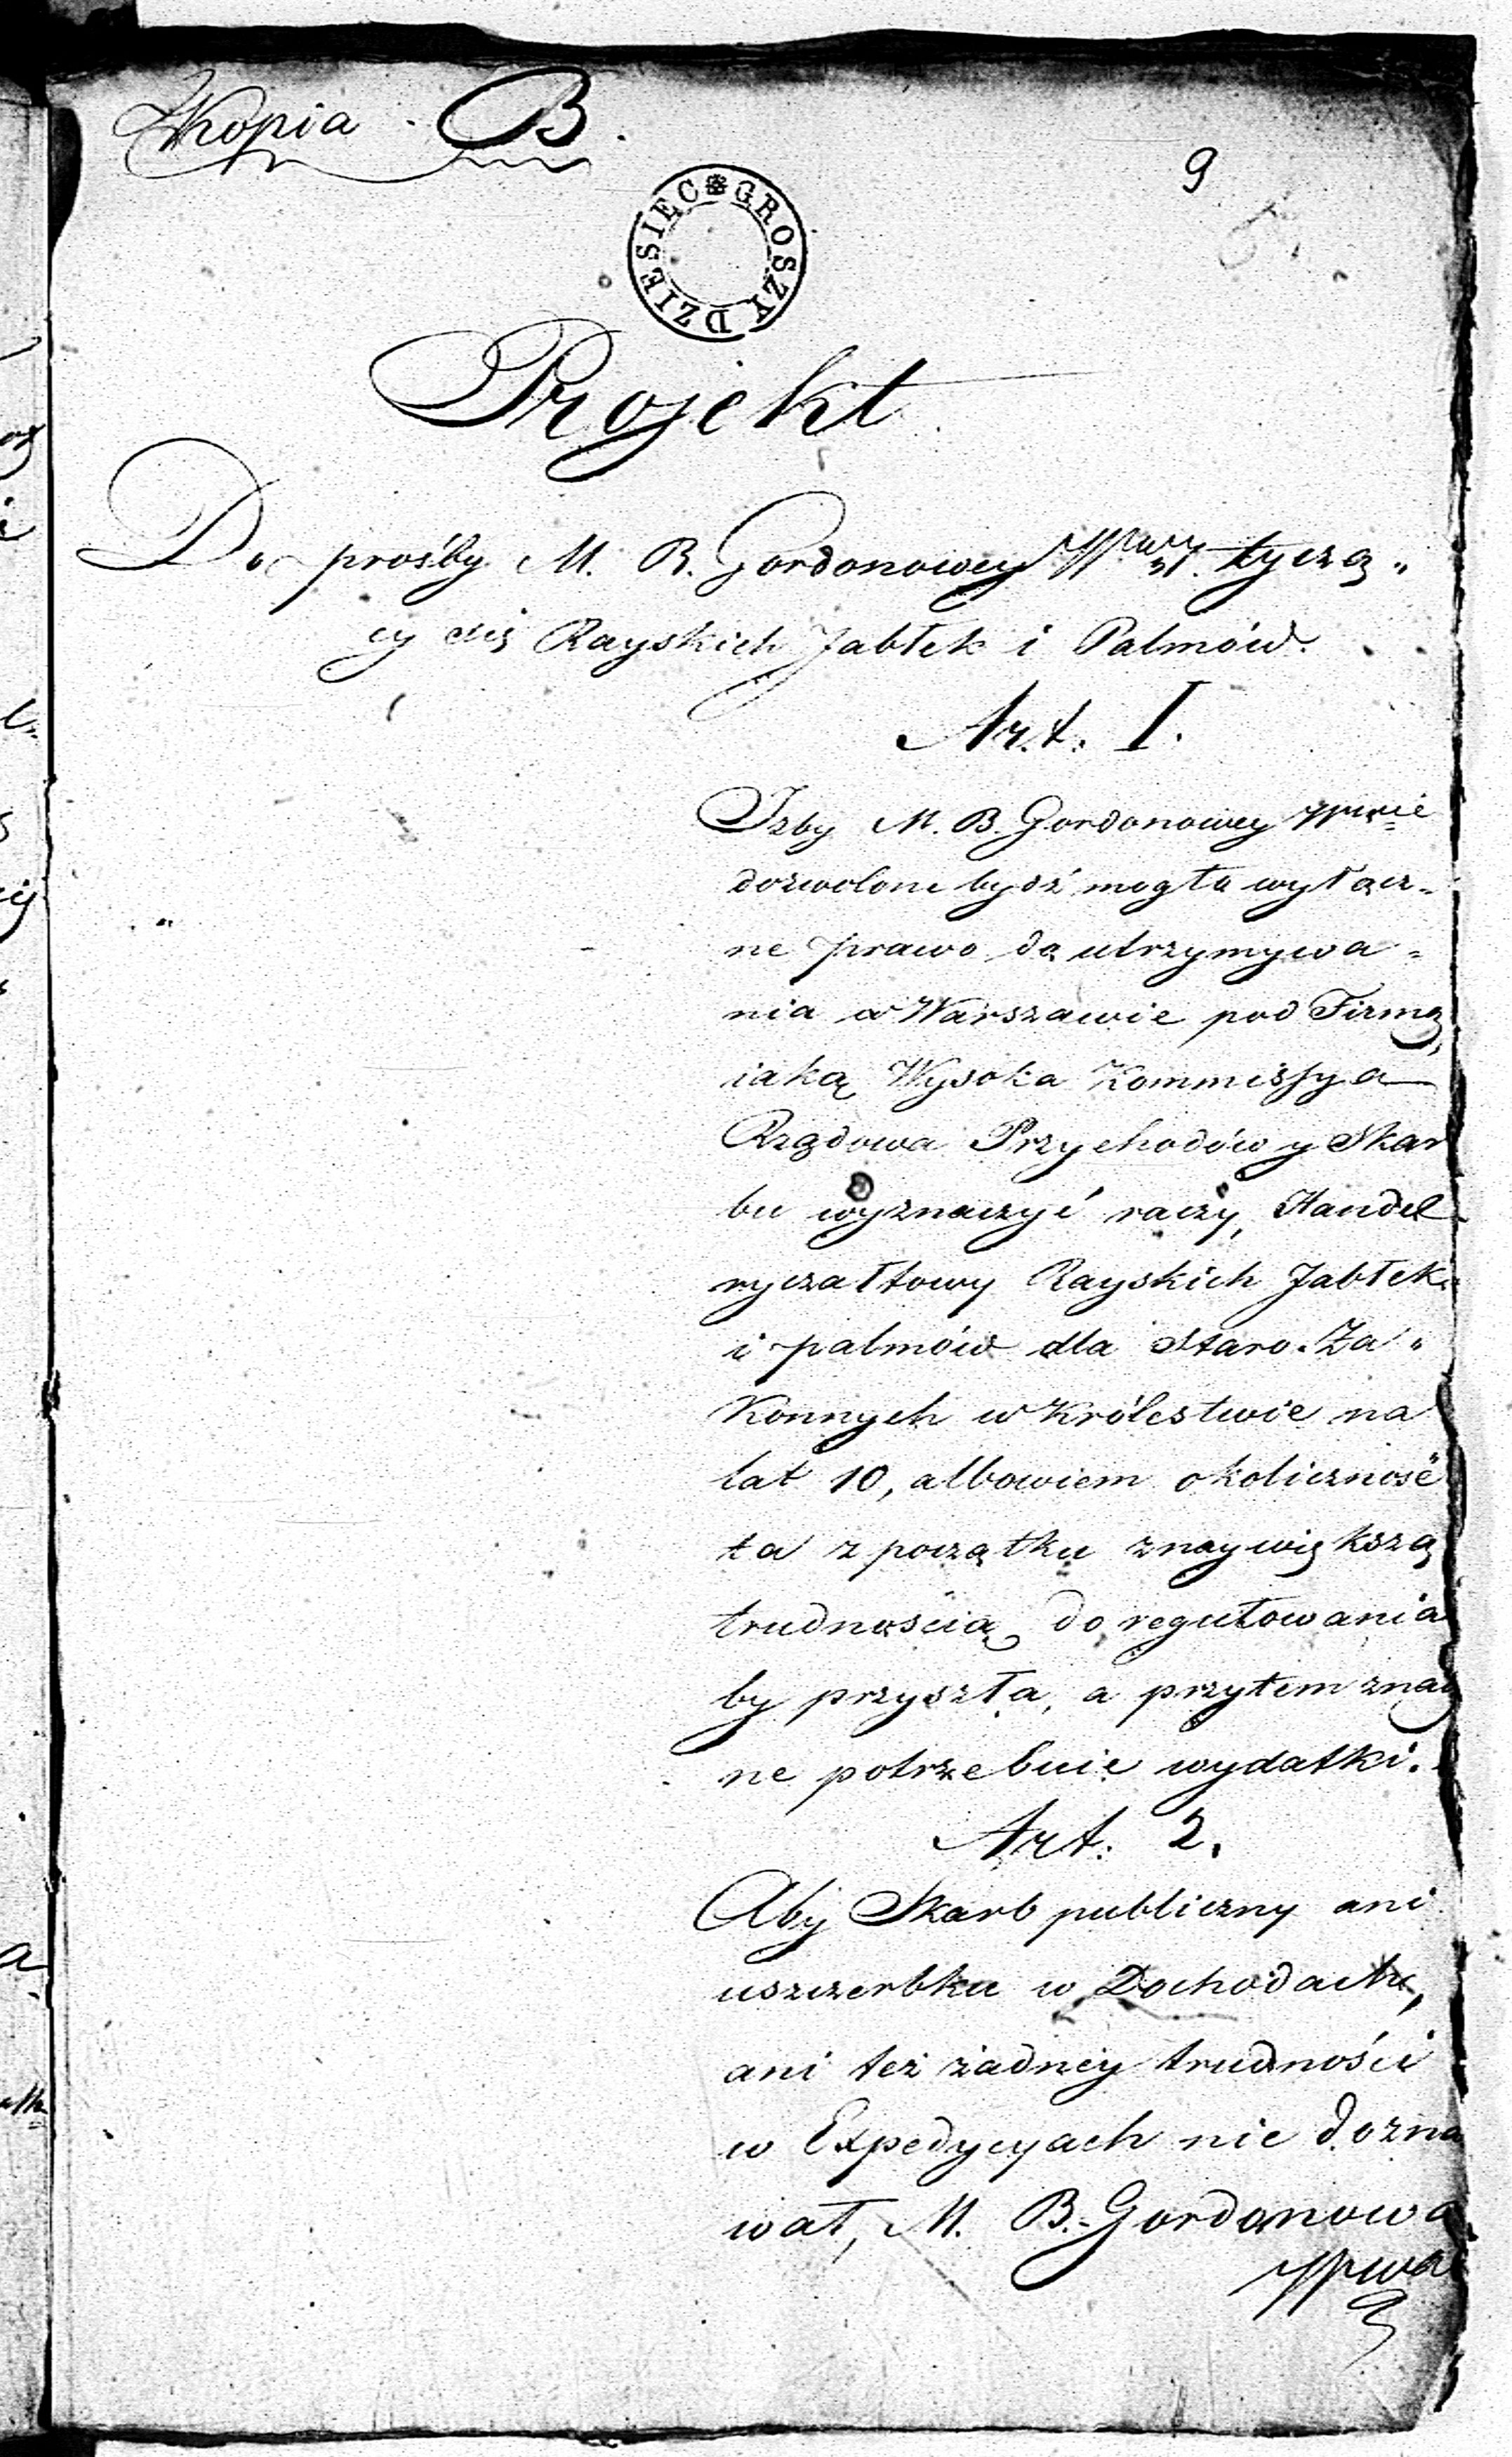 Kopia . B.
9
DZIESIEC GROSZY
Projekt
Do prośby M. B. Gordonowey tyczą„
cy się Rayskich Jabłek i Palmów.
Art. I.
Izby M. B. Gordonowey
dozwolone bydź mogło wyłącz=
ne prawo do utrzymywa=
nia w Warszawie pod Firmą,
iaką Wysoka Kommissya
Rządowa Przychodów y Skar
bu wyznaczyć raczy, Handel
ryczałtowy Rayskich Jabłek
i palmów dla Staro-Za„
Konnych w Królestwie na
lat 10, albowiem okoliczność
ta z początku znaywiększą
trudnością do regulowania
by przyszła, a przytem znay
ne potrzebuie wydatki.
Art: 2.
Aby Skarb publiczny ani
uszczerbku w Dochodach,
ani też żadney trudności
w Expedycyach nie dozna
wał, M. B. Gordonowa